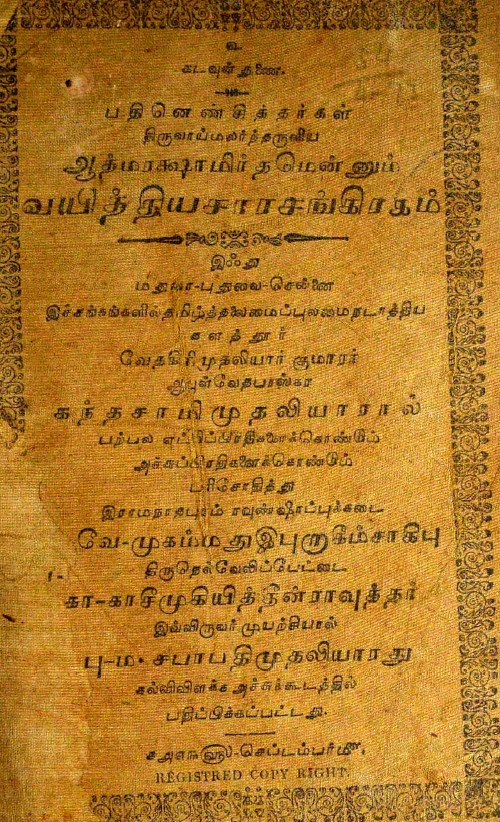 உ
கடவுள் துணை.
பதினெண்சித்தர்கள்
திருவாய்மலர்ந்தருளிய
ஆத்மரக்ஷாமிர்தமென்னும்
வயித்தியசாரசங்கிரகம்
இஃது
மதுரை-புதுவை-சென்னை
இச்சங்கங்களில்தமிழ்த்தலைமைப்புலமைநடாத்திய
களத்தூர்
வேதகிரிமுதலியார் குமாரர்
ஆயுள்வேதபாஸ்கர
கந்தசாமிமுதலியாரால்
பற்பல ஏட்டுப்பிரதிகளைக்கொண்டும்
அச்சுப்பிரதிகளைக்கொண்டும்
பரிசோதித்து
இராமநாதபுரம் ரவுண்ஷாப்புக்கடை
வே-முகம்மதுஇபுறாகீம்சாகிபு
திருநெல்வேலிப்பேட்டை
கா-காசீமுகியித்தின்ராவுத்தர்
இவ்விருவர் முயற்சியால்
பு-ம-சபாபதிமுதலியாரது
கல்விவிளக்க அச்சுக்கூடத்தில்
பதிப்பிக்கப்பட்டது.
செப்டம்பர்மீ.
REGISTRED COPY RIGHT.